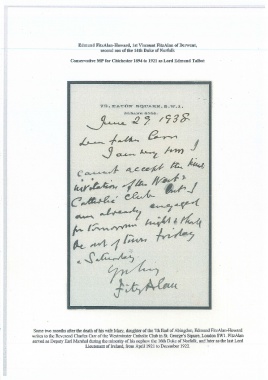 Edmund FitzAlan-Howard, 1st Viscount FitzAlan of Derwent,
second son of the 14th Duke of Norfolk
Conservative MP for Chichester 1894 to 1921 as Lord Edmund Talbot
EATON SQUARE, S.W.1.
June 29 1938
Dear Father
I am very sorry I
cannot accept the kind
invitation of the West
Catholic Club but I
am already engaged
for tomorrow night & shall
be out of town Friday
& Saturday
FitzAlan
Some two months after the death of his wife Mary, daughter of the 7th Earl of Abingdon, Edmund FitzAlan-Howard
writes to the Reverend Charles Carr of the Westminster Catholic Club in St. George's Square, London SW1. FitzAlan
served as Deputy Earl Marshal during the minority of his nephew the 16th Duke of Norfolk, and later as the last Lord
Lieutenant of Ireland, from April 1921 to December 1922.